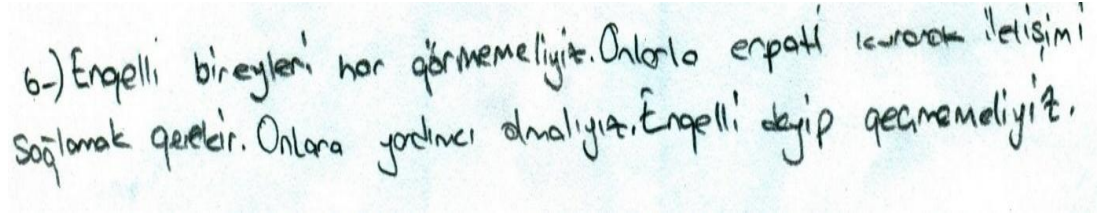 6-) Engelli bireyleri hor görmemeliyiz. Onlarla empati kurarak iletişimi
sağlamak gerekir. Onlara yardımcı olmalıyız. Engelli deyip geçmemeliyiz.